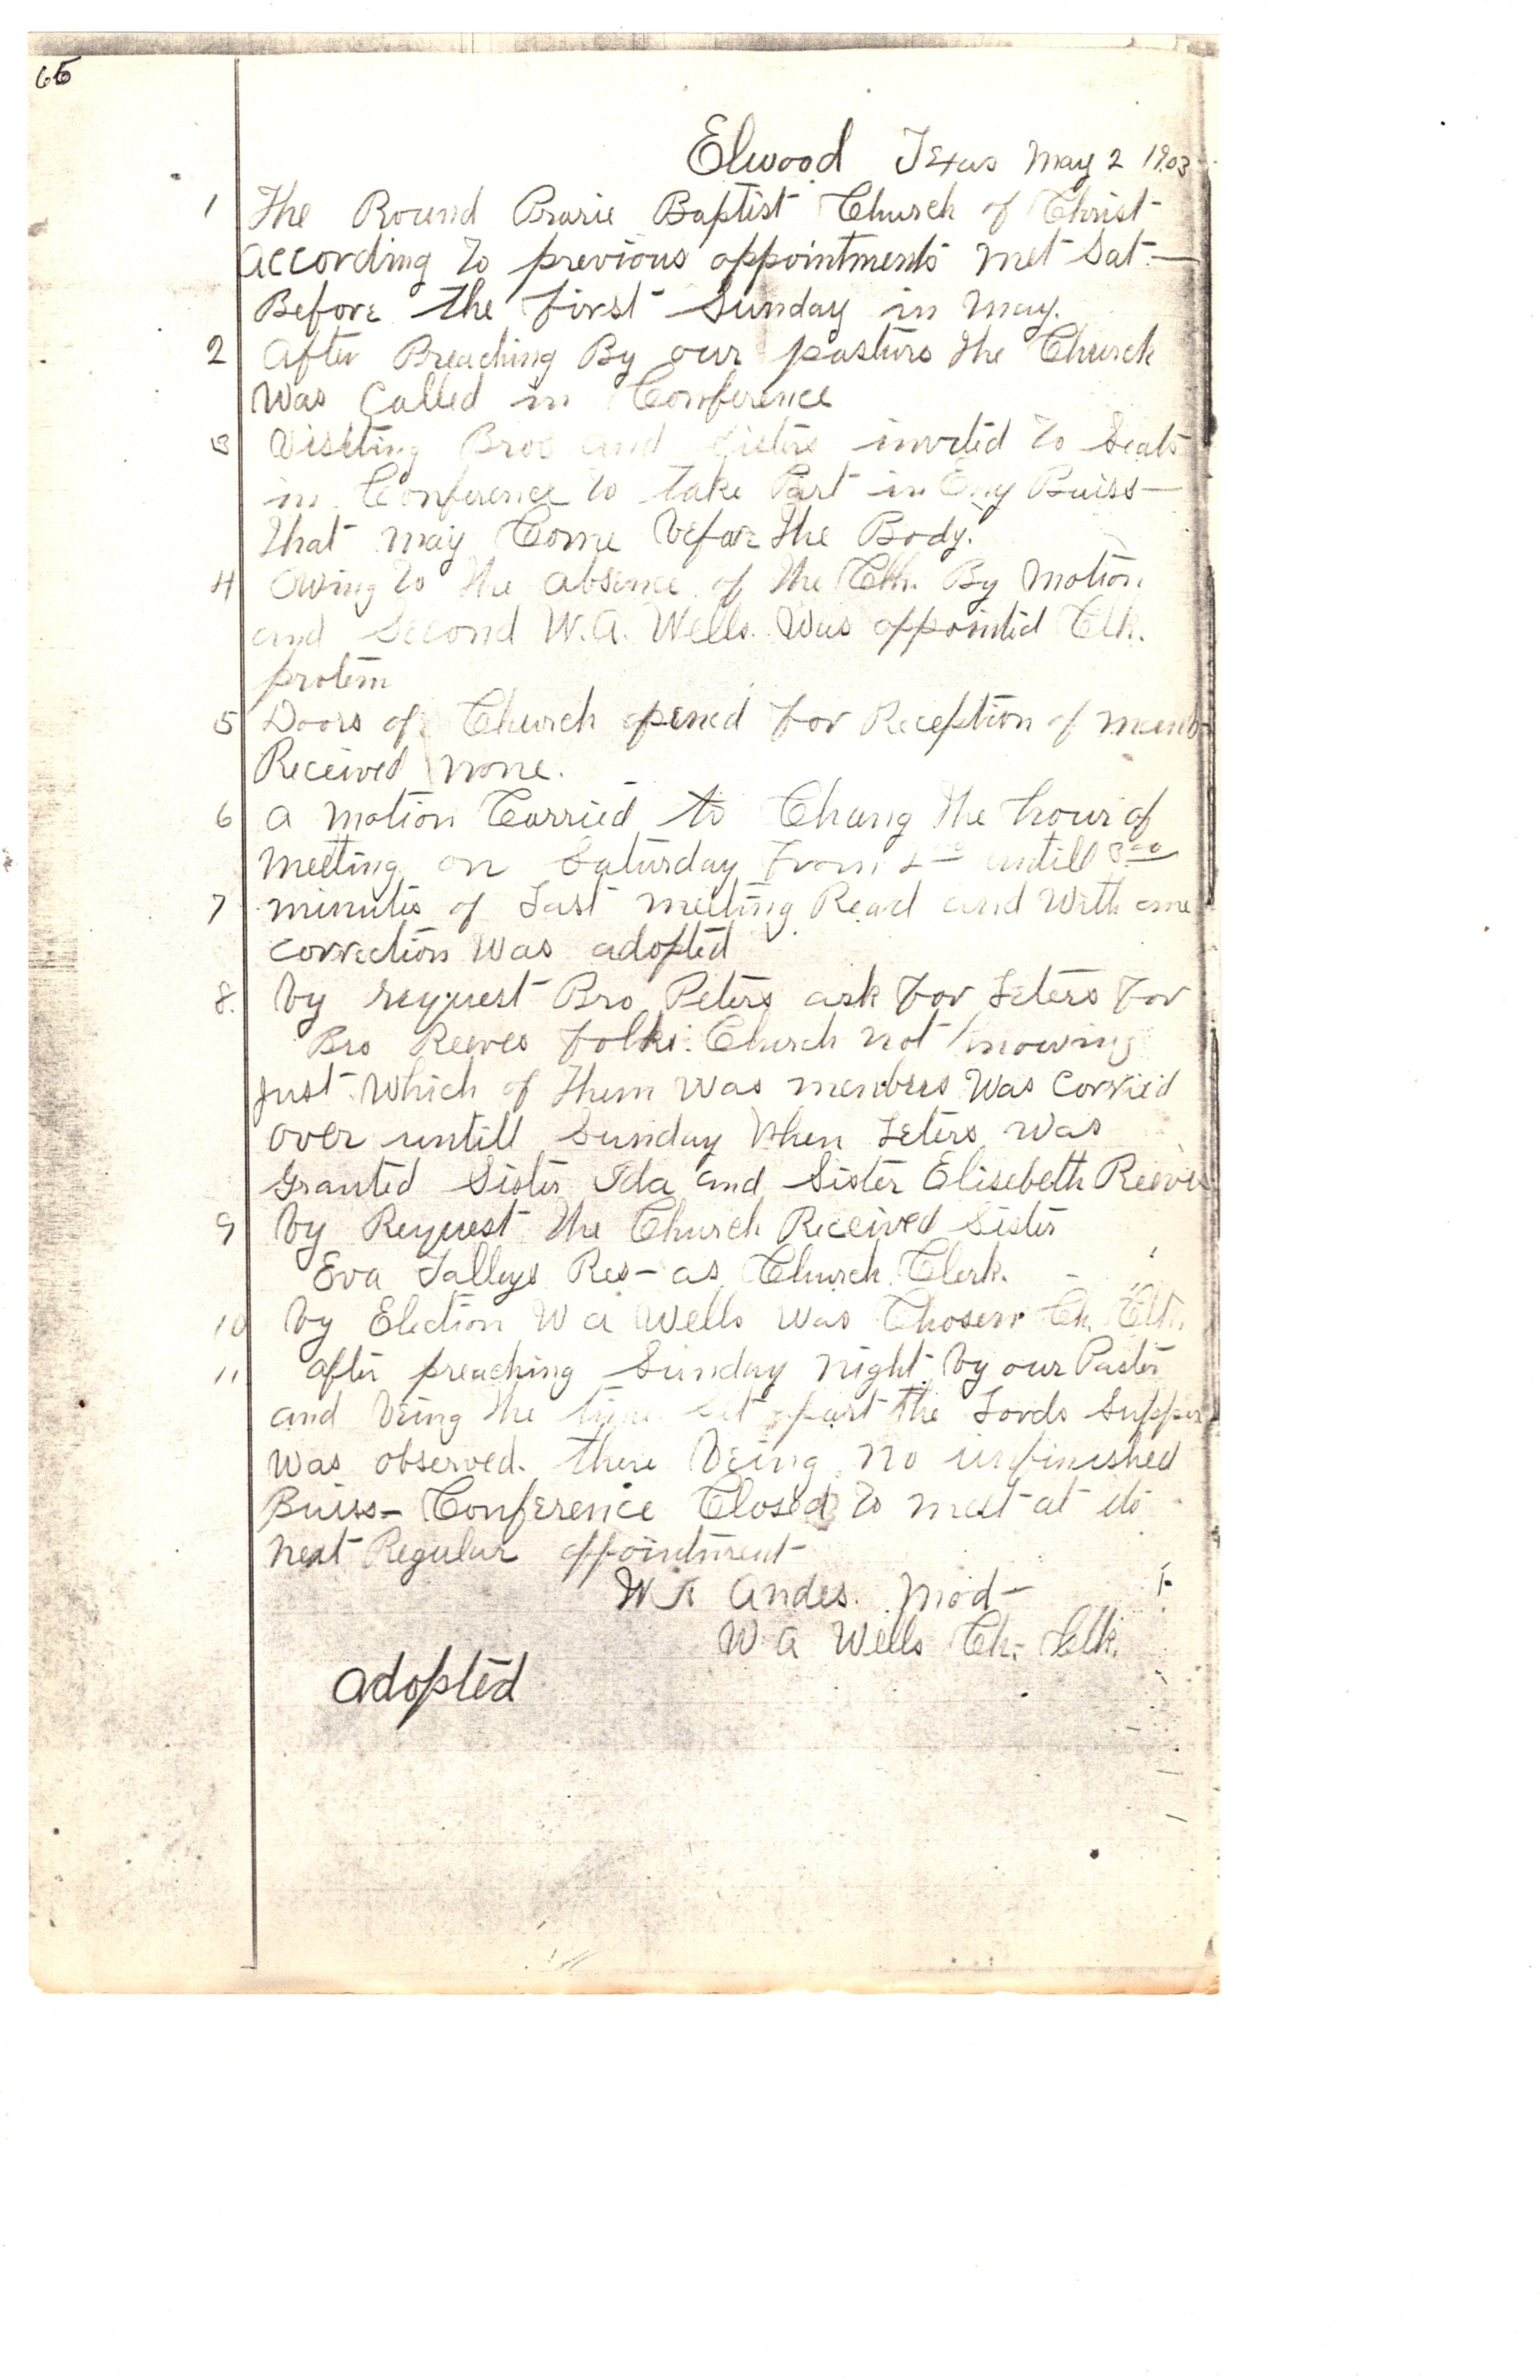 66
Elwood Texas May 2 1903
1 The Round Prarie Baptist Church of Christ
according to previous appointments met Sat.—
Before the first Sunday in May.
2 After Preaching By our pasture the Church
Was Called in Conference
3 Visiting Bros and Sisters invited to Seats
in Conference to take Part in Eny Buiss—
that may Come before the Body.
4 Owing to the absence of the Clk. By Motion
and Second W.A. Wells Was appointed Clk.
protem
5 Doors of Church opened for Reception of memb
Received none.
6 a motion Carried to Chang the hour of
meeting on Saturday from untill
7 minutes of Last meeting Read and With one
correction Was adopted
8. by request Bro Peters ask for Leters for
Bro Reeves folks. Church not knowing
just which of them was members Was carried
over untill Sunday When Leters was
Granted Sister Ida and Sister Elisebeth Reeves
9 by Request the Church Received Sister
Eva Talleys Res— as Church Clerk.
10 by Election W a Wells was Chosen Ch. Clk.
11 after preaching Sunday night by our Paster
and being the time set apart the Lords Supper
was observed. there being no unfinished
Buiss— Conference Closed to meet at its
next Regular appointment
Andes. Mod—
W.A Wells Ch. Clk.
adopted